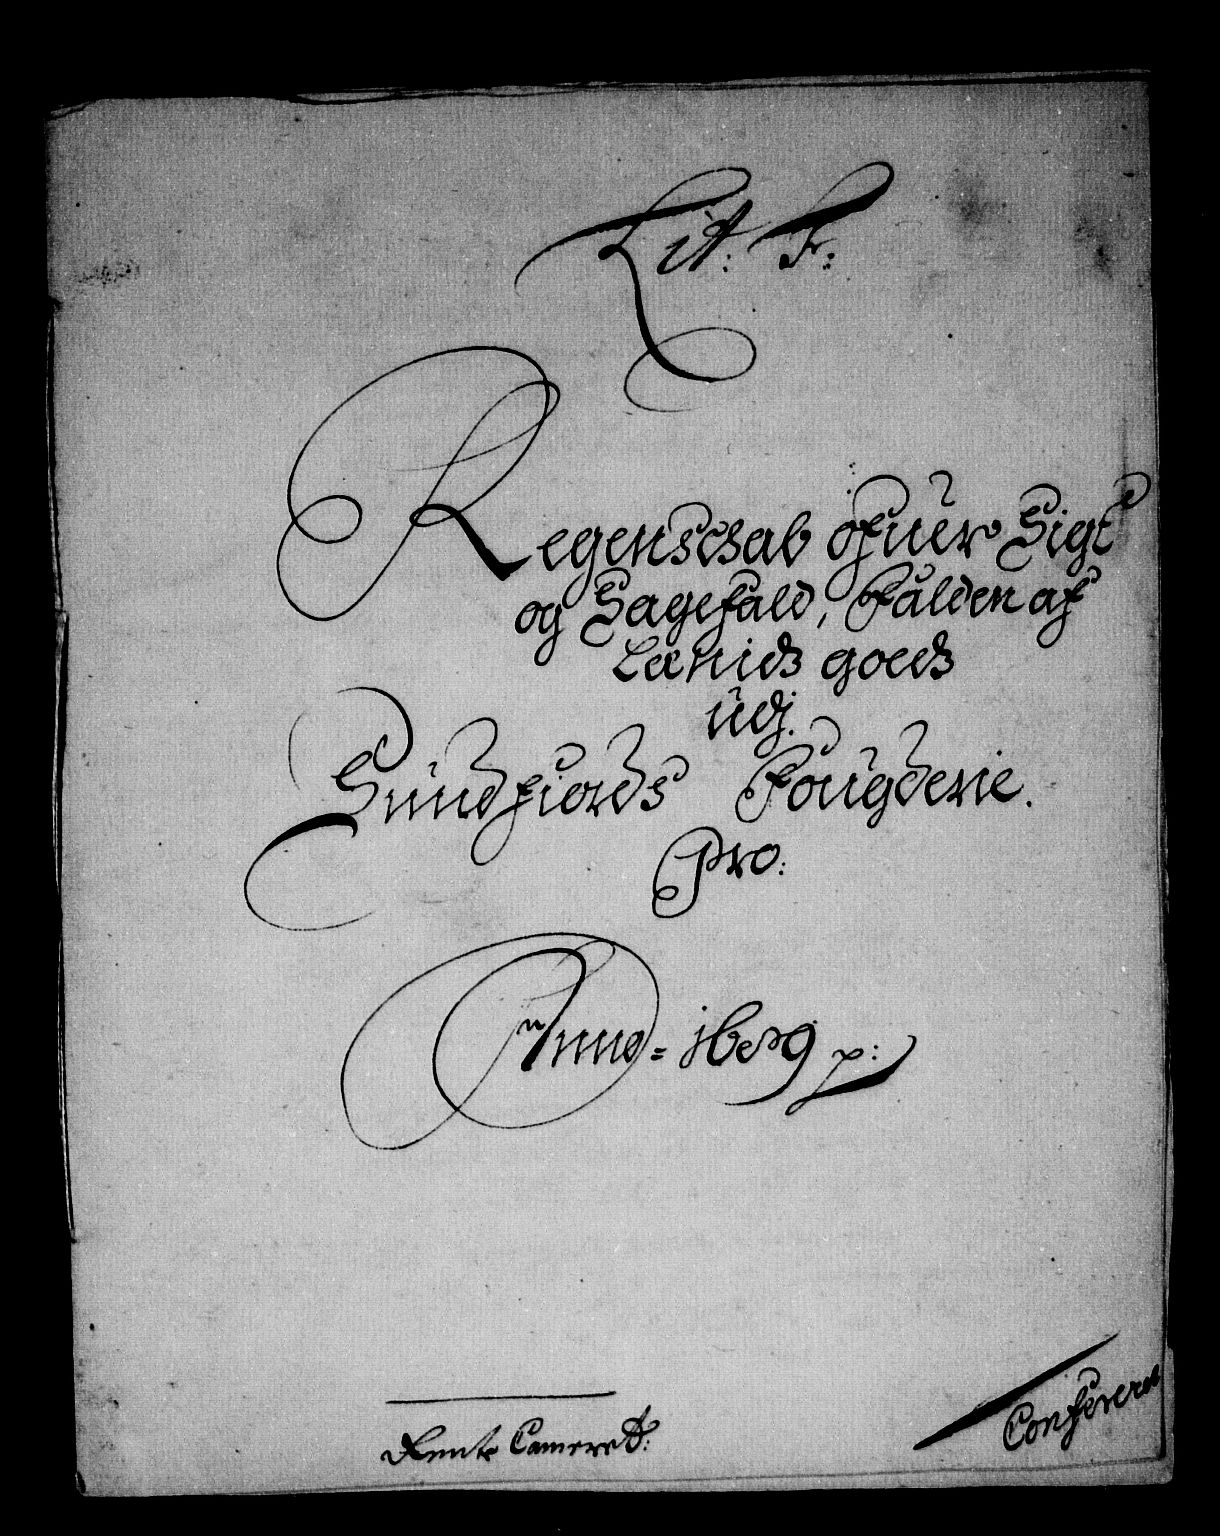 Lit: F:
Regenschab ofuer Sigt
og Sagefald, Falden af
Lænids goeds
udj.
Sundfiords Fougderie.
Pro:
Anno = 1689 p:
Rente Cameret:
Confereret